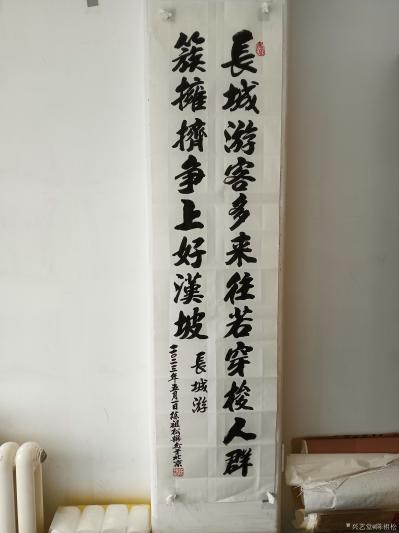 長城游客多来往若穿梭人群
簇擁擠争上好漢坡
長城游
二〇二三年五月一日徐祖松撰书于北京
兴艺堂@陈祖松